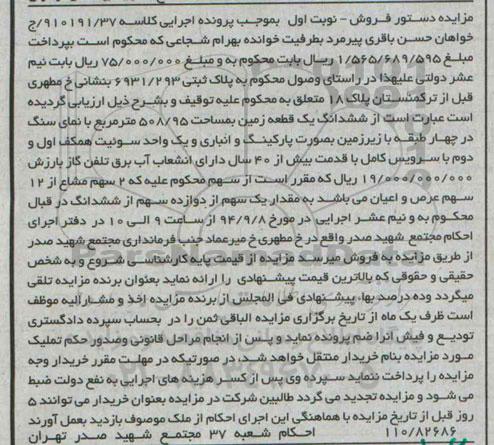 مزایده دستور فروش - نوبت اول   بموجب پرونده اجرایی کلاسه ۹۱۰۱۹۱/۳۷/ج
خواهان حسن باقری پیرمرد بطرفیت خوانده بهرام شجاعی که محکوم است بپرداخت
مبلغ ۱/۵۶۵/۶۸۹/۵۹۵ ریال بابت محکوم به و مبلغ ۷۵/۰۰۰/۰۰۰ ریال بابت نیم
عشر دولتی علیهذا در راستای وصول محکوم به پلاک ثبتی ۶۹۳۱/۲۹۳ بنشانی خ مطهری
قبل از ترکمنستان پلاک ۱۸ متعلق به محکوم علیه توقیف و بشرح ذیل ارزیابی گردیده
است عبارت است از ششدانگ یک قطعه زمین بمساحت ۵۰۸/۹۵ مترمربع با نمای سنگ
در چهار طبقه با زیرزمین بصورت پارکینگ و انباری و یک واحد سوئیت همکف اول و
دوم با سرویس کامل با قدمت بیش از ۴۰ سال دارای انشعاب آب برق تلفن گاز بارزش
۱۹/۰۰۰/۰۰۰/۰۰۰ ریال که مقرر است از سهم محکوم علیه که ۲ سهم مشاع از ۱۲
سهم عرص و اعیان می باشد به مقدار یک سهم از دوازده سهم از ششدانگ در قبال
محکوم به و نیم عشر اجرایی در مورخ ۹۴/۹/۸ از ساعت ۹ الی ۱۰ در دفتر اجرای
احکام مجتمع شهید صدر واقع در خ مطهری خ میرعماد جنب فرمانداری مجتمع شهید صدر
از طریق مزایده به فروش میرسد مزایده از قیمت پایه کارشناسی شروع و به شخص
حقیقی و حقوقی که بالاترین قیمت پیشنهادی را ارائه نماید بعنوان برنده مزایده تلقی
میگردد وده درصد بهای پیشنهادی فی المجلس از برنده مزایده اخذ و مشارالیه موظف
است ظرف یک ماه از تاریخ برگزاری مزایده الباقی ثمن را در بحساب سپرده دادگستری
تودیع و فیش آنرا ضم پرونده نماید و پس از انجام مراحل قانونی وصدور حکم تملیک
مورد مزایده بنام خریدار منتقل خواهد شد، در صورتیکه در مهلت مقرر خریدار وجه
مزایده را پرداخت ننماید سپرده وی پس از کسر هزینه های اجرایی به نفع دولت ضبط
می شود و مزایده تجدید می گردد طالبین شرکت در مزایده بعنوان خریدار می توانند ۵
روز قبل از تاریخ مزایده با هماهنگی این اجرای احکام از ملک موصوف بازدید بعمل آورند
۱۱۰/۸۲۶۸۶   احکام شعبه ۳۷ مجتمع شهید صدر تهران